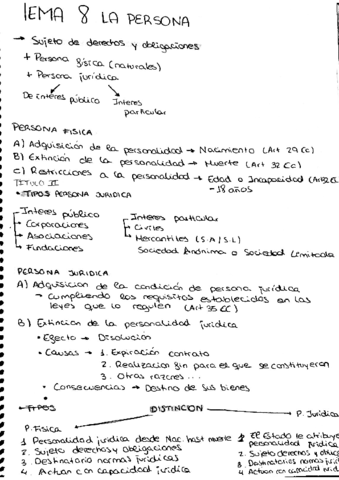 TEMA 8 LA PERSONA
→ Sujeto de derechos y obligaciones
+ Persona física (naturales)
+ Persona jurídica
De interés público Interes particular
PERSONA FISICA
A) Adquisición de la personalidad → Nacimiento (Art 29 CC)
B) Extinción de la personalidad → Muerte (Art 32 CC)
C) Restricciones a la personalidad → Edad o Incapacidad
-18 años
TITULO II
• TIPOS PERSONA JURIDICA
Interes público
Corporaciones
Asociaciones
Fundaciones
Interes particular
Civiles
Mercantiles (S.A/S.L)
Sociedad Anónima o Sociedad Limitada
PERSONA JURIDICA
A) Adquisicion de la condición de persona jurídica
→ cumpliendo los requisitos establecidos en las
leyes que lo regulen (Art 35 CC)
B) Extincion de la personalidad juridica
• Efecto → Disolución
• Causas → 1. Expiración contrato
2. Realizacion fin para el que se constituyeron
3. Otras razones ...
• Consecuencias → Destino de sus bienes
TIPOS
DISTINCION
P. Física
1 Personalidad jurídica desde Nac. hast muerte
2 Sujeto derechos y obligaciones
3 Destinatario normas jurídicas
4 Actúan con capacidad jurídica
P. Juridica
1 El Estado le atribuye
personalidad jurídica
2. Sujeto derechos y oblig
3 Destinatarios normas juri
4 Actúan con capacidad